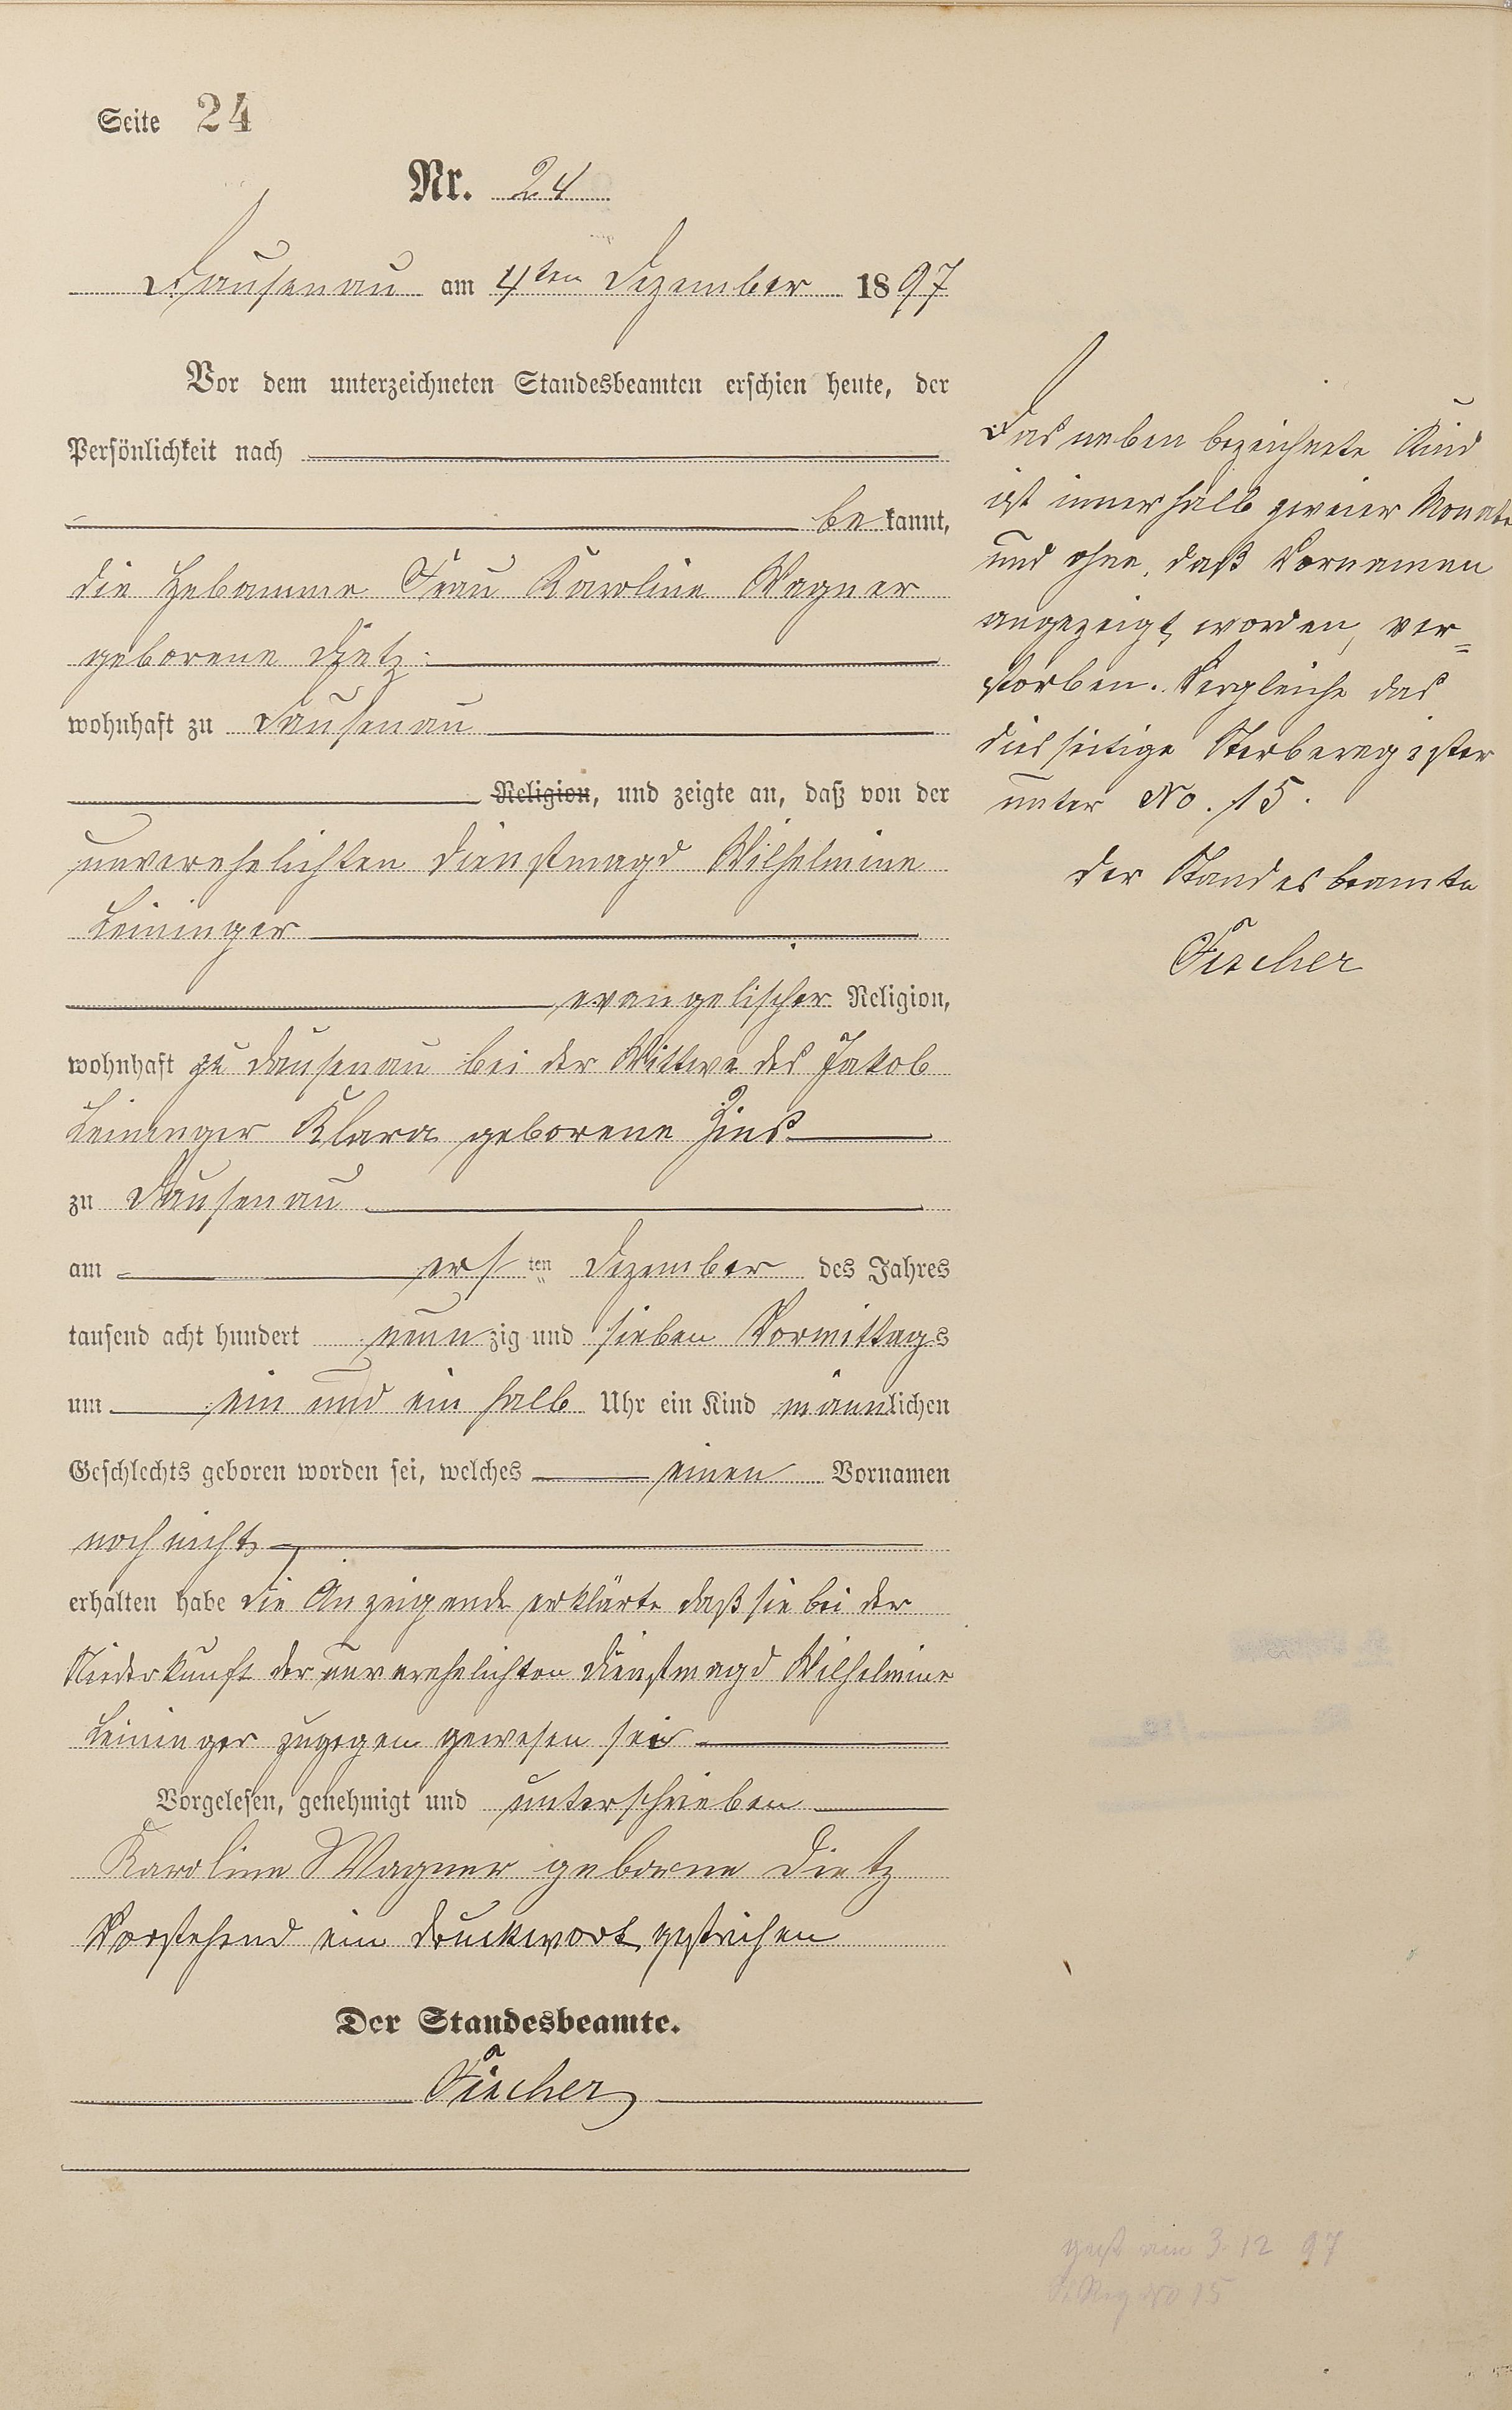 Seite 24
Nr. 24
Dausenau am 4ten Dezember 1897
Vor dem unterzeichneten Standesbeamten erschien heute, der
Persönlichkeit nach
bekannt,
die Hebamme Frau Karoline Wagner
geborene Dietz
wohnhaft zu Dausenau
Religion, und zeigte an, daß von der
unverehelichten Dienstmagd Wilhelmine
Leininger
evangelischer Religion,
wohnhaft zu Dausenau bei der Wittwe des Jakob
Leininger Klara geborene Zins
zu Dausenau
am ersten Dezember des Jahres
tausend acht hundert neunzig und sieben Vormittags
um ein und ein halb Uhr ein Kind männlichen
Geschlechts geboren worden sei, welches einen Vornamen
noch nicht
erhalten habe die Anzeigende erklärte daß sie bei der
Niederkunft der unverehelichten Dienstmagd Wilhelmine
Leininger zugegen gewesen sei
Vorgelesen, genehmigt und unterschrieben
Karoline Wagner geborne Dietz
Vorstehend ein Druckwort gestrichen
Der Standesbeamte.
Fischer
Das neben bezeichnete Kind
ist innerhalb zweier Monate
und ohne, daß Vornamen
angezeigt worden, ver=
storben. Vergleiche das
diesseitige Sterberegister
unter No. 15.
Der Standesbeamte
Fischer
gest am 3. 12 97
St Reg No 15